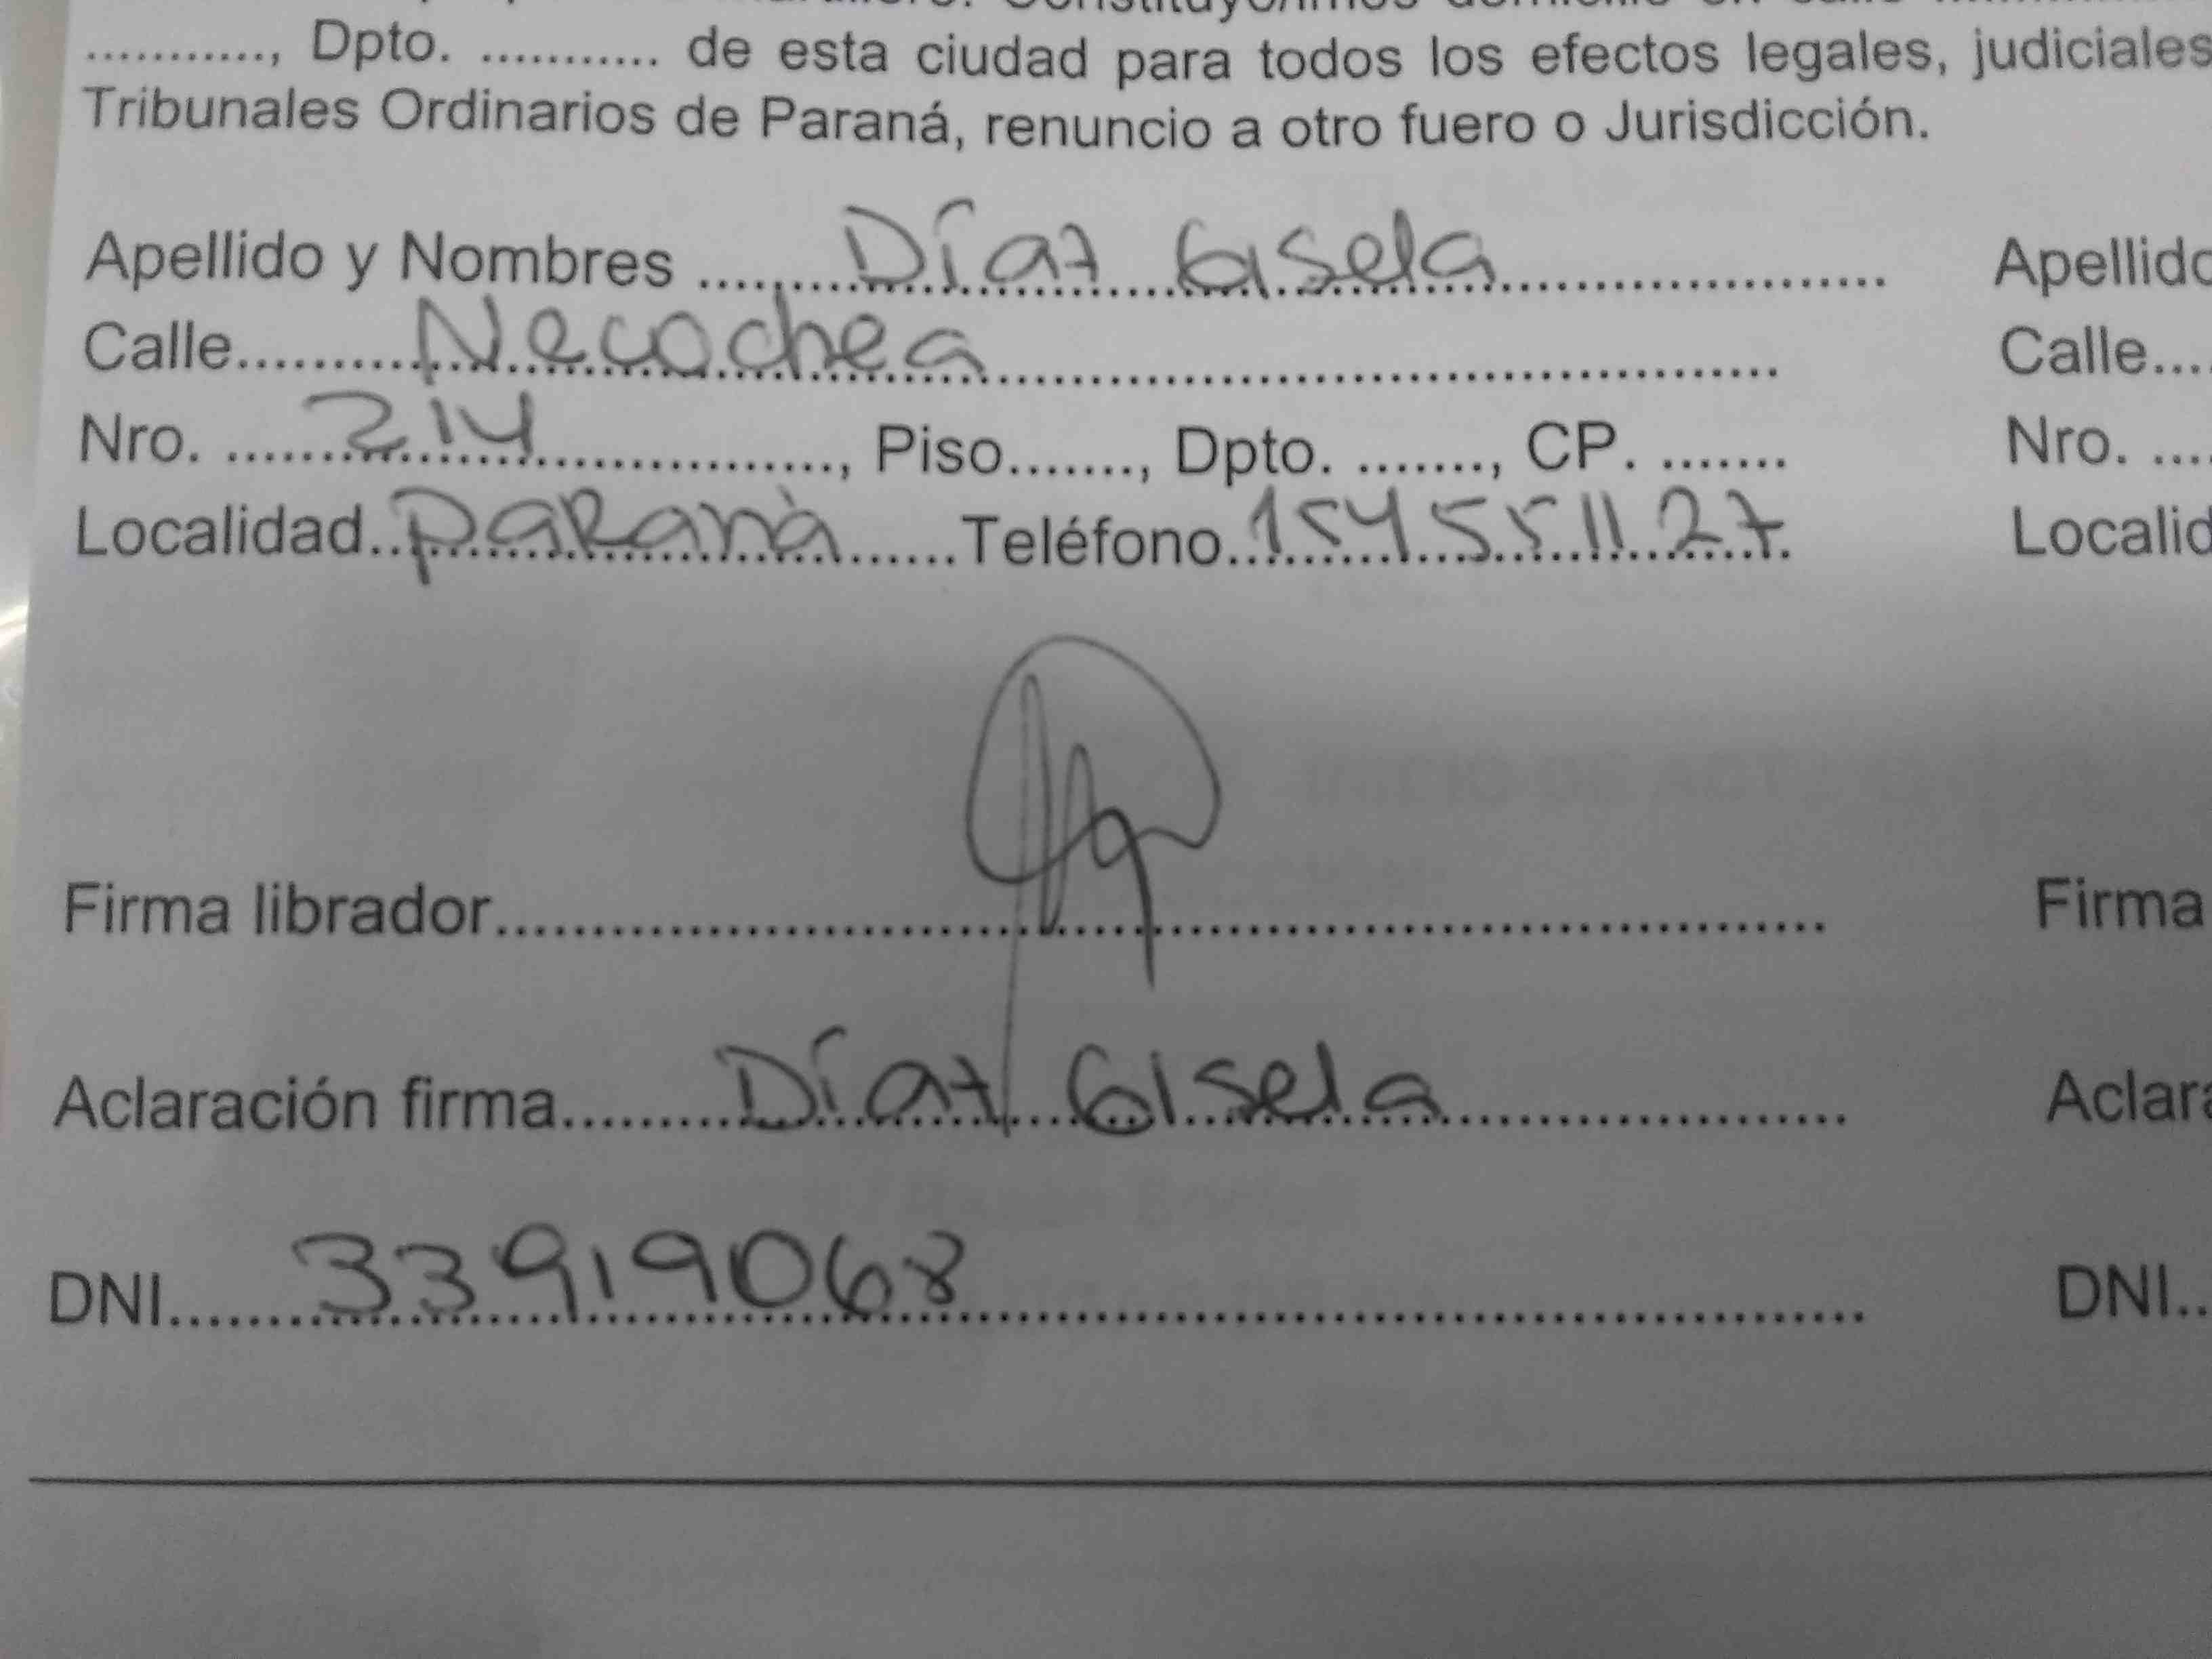 Constituyo/imos domicilio en calle ............
............, Dpto. ............ de esta ciudad para todos los efectos legales, judiciales
Tribunales Ordinarios de Paraná, renuncio a otro fuero o Jurisdicción.
Apellido y Nombres ........ Díaz Gisela ........ Apellido
Calle........ Necochea ........ Calle....
Nro. ........ 214 ........, Piso......., Dpto. ........, CP. ....... Nro. ....
Localidad.. Paranà ......Teléfono.. 154 55 11 27 Localid
Firma librador........ Firma
Aclaración firma........ Díaz Gisela ........ Aclara
DNI...... 33919068 ........ DNI..